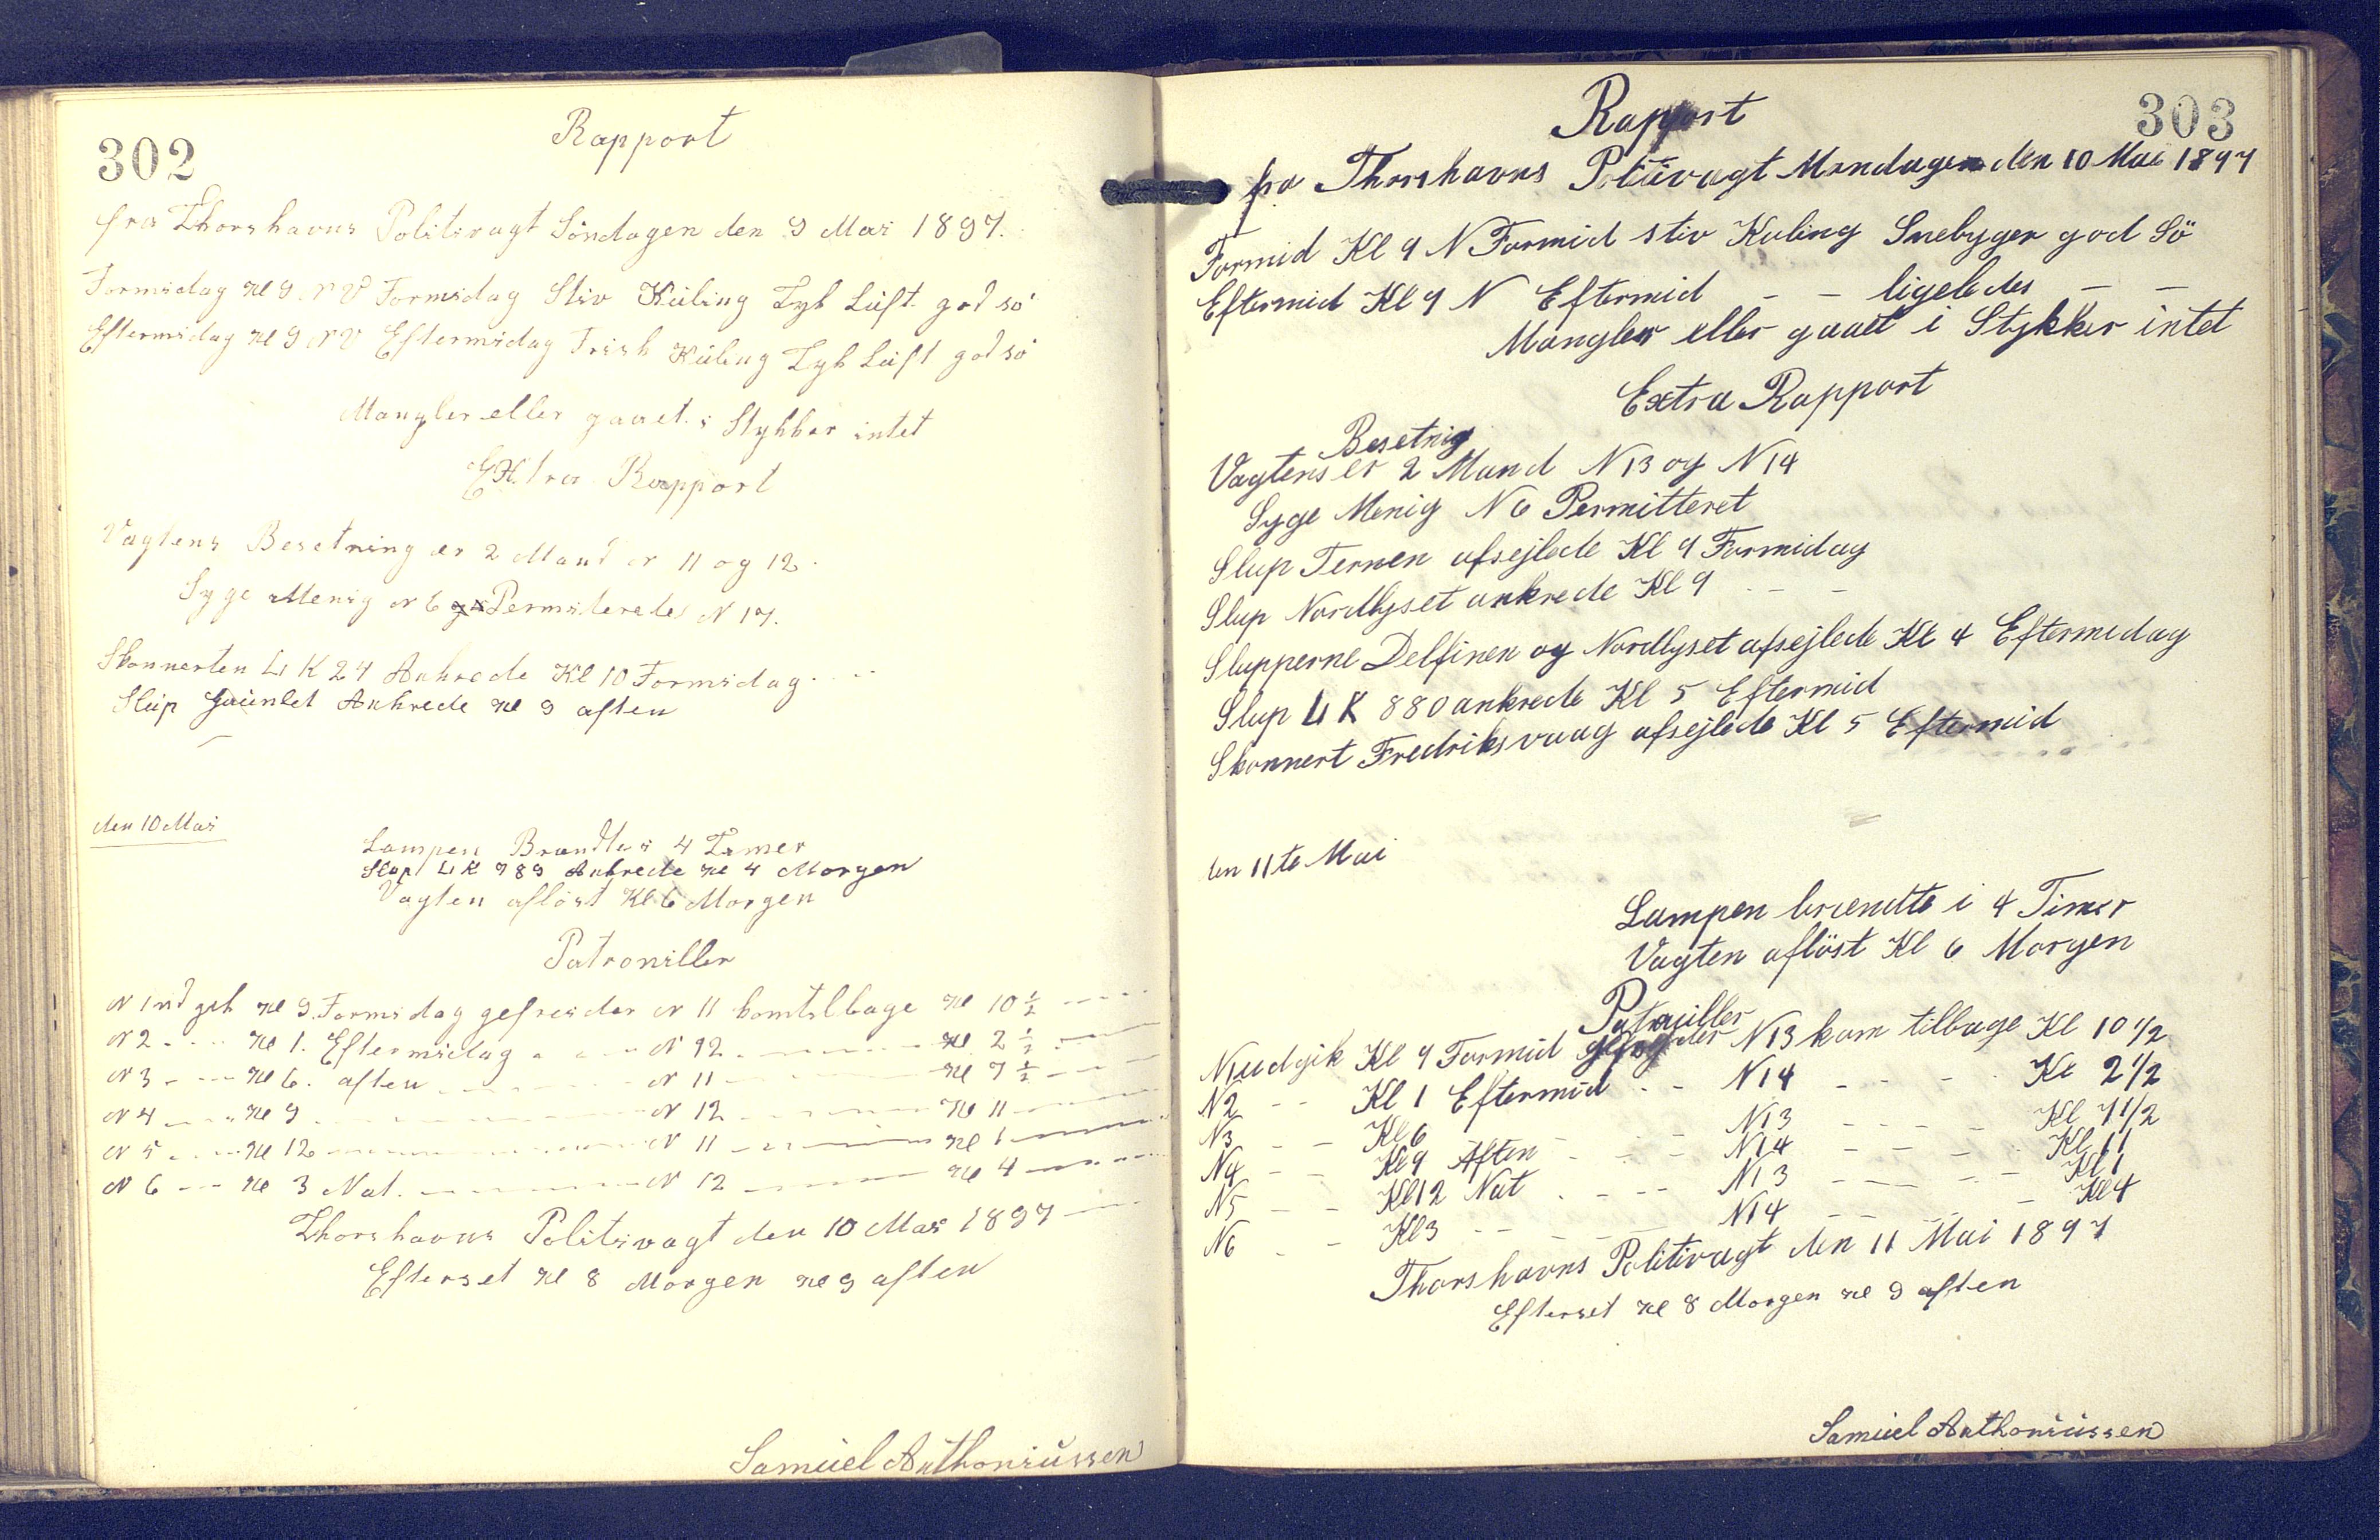 302
Rapport
fra Thorshavns Politivagt Söndagen den 9 Mai 1897.
Formidag Kl 9 N V Formidag Stiv Kuling Tyk Luft god sö
Eftermidag Kl 9 N V Eftermidag Frisk Kuling Tyk Luft god sö
Mangler eller gaaet i Stykker intet
Extra Rapport
Vagtens Besetning er 2 Mand N 11 og 12.
Syge Menig N 6 Permiterede N 17.
Skonnerten LK 24 Ankrede Kl 10 Formidag
Slup Ankrede Kl 9 aften
den 10 Mai
Lampen Brandte i 4 Timer
Slup LK 989 Ankrede Kl 4 Morgen
Vagten aflöst Kl 6 Morgen
Patroniller
N 1 ud gek Kl 9. Formidag gefreider N 11 komtilbage Kl 10 ½ - - - -
N 2 - - - Kl 1. Eftermidag - - - N 12 - - - Kl 2 ½ - - -
N 3 - - - Kl 6. aften - - - N 11 - - - Kl 7 ½ - - -
N 4 - - - Kl 9 - - - N 12 - - - Kl 11 - - -
N 5 - - - Kl 12 - - - N 11 - - - Kl 1 - - -
N 6 - - - Kl 3 Nat. - - - N 12 - - - Kl 4 - - -
Thorshavns Politivagt den 10 Mai 1897
Efterset Kl 8 Morgen Kl 9 aften
Samuel Anthoniussen
303
Rapport
fra Thorshavns Politivagt Mandagen den 10 Mai 1897
Formid Kl 9 N Formid stiv Kuling Snebyger god Sö
Eftermid Kl 9 N Eftermid - - ligeledes - -
Mangler eller gaaet i Stykker intet
Extra Rapport
Besetnig
Vagtens er 2 Mand N 13 og N 14
Syge Menig N 6 Permitteret
Slup Ternen afsejlede Kl 9 Formidag
Slup Nordlyset ankrede Kl 9 - - -
Slupperne Delfinen og Nordlyset afsejlede Kl 4 Eftermidag
Slup LK 880 ankrede Kl 5 Eftermid
Skonnert Fredriksvaag afsejlede Kl 5 Eftermid
den 11te Mai
Lampen brændte i 4 Timer
Vagten aflöst Kl 6 Morgen
Patruiller
N1 udgik Kl 9 Formid N13 kom tilbage Kl 10 1/2
N2 - - Kl 1 Eftermid - - N14 - - - Kl 2 1/2
N3 - - Kl 6 - - - N13 - - - Kl 7 1/2
N4 - - Kl 9 Aften - - - N14 - - - Kl 11
N5 - - Kl 12 Nat - - - N13 - - - Kl 1
N6 - - Kl 3 - - - N14 - - - Kl 4
Thorshavns Politivagt den 11 Mai 1897
Efterset Kl 8 Morgen Kl 9 aften
Samuel Anthoniussen